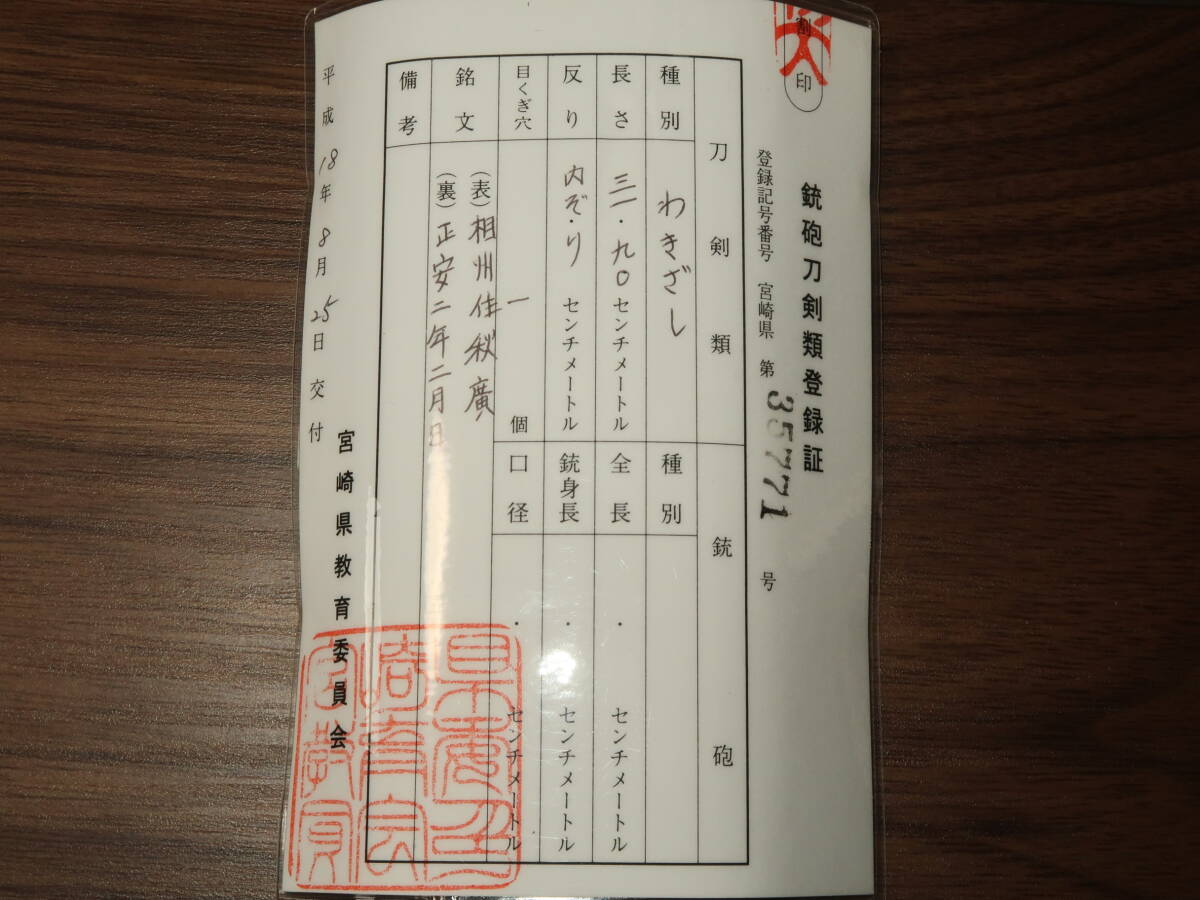 割印
銃砲刀剣類登録証
登録記号番号 宮崎県 第35771号
刀剣類 銃砲
種別 わきざし 種別
長さ 三一・九〇センチメートル 全長 ・ センチメートル
反り 内ぞ・り センチメートル 銃身長 ・ センチメートル
目くぎ穴 一 個 口径 ・ センチメートル
銘文 (表)相州住秋廣
(裏)正安二年二月日
備考
宮崎県教育委員会
平成18年8月25日交付